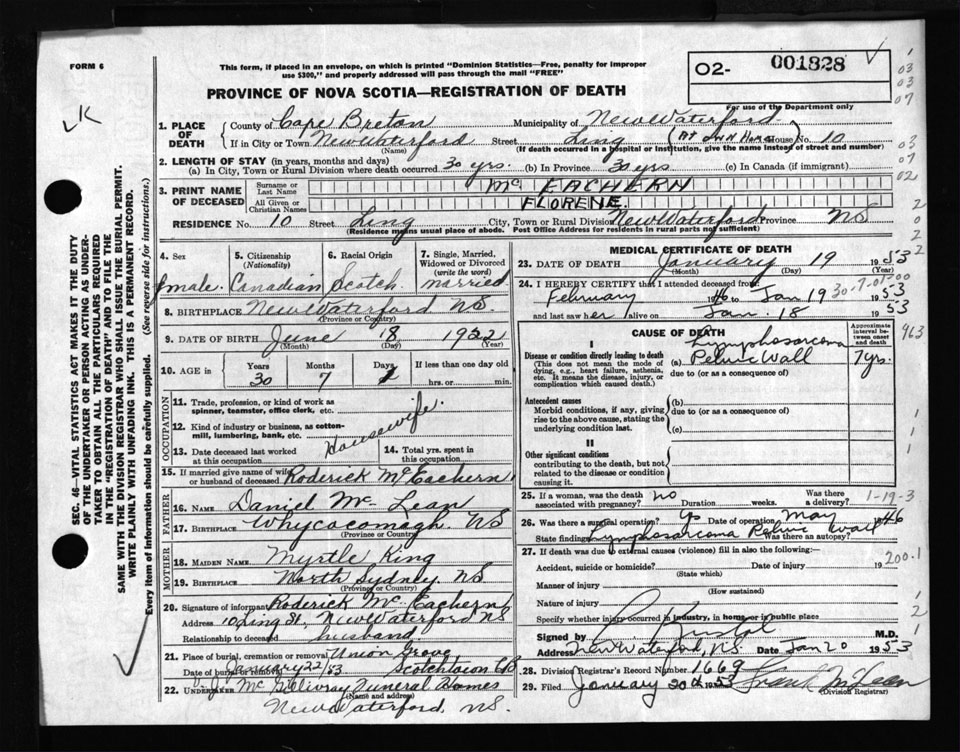 FORM 6
This form, if placed in an envelope, on which is printed "Dominion Statistics—Free, penalty for improper
use $300," and properly addressed will pass through the mail "FREE"
O2- 001828
03
03
07
PROVINCE OF NOVA SCOTIA—REGISTRATION OF DEATH
For use of the Department only
K
1. PLACE OF DEATH
County of Cape Breton Municipality of New Waterford
If in City or Town New Waterford (Name) Street Ling (At own Home) House No. 10
(If death occurred in a hospital or institution, give the name instead of street and number)
03
07
02
2. LENGTH OF STAY (in years, months and days)
(a) In City, Town or Rural Division where death occurred 30 yrs. (b) In Province 30 yrs (c) In Canada (if immigrant)
3. PRINT NAME OF DECEASED
Surname or Last Name Mc EACHERN
All Given or Christian Names FLORENE.
RESIDENCE No. 10 Street Ling City, Town or Rural Division New Waterford Province NS
(Residence means usual place of abode. Post Office Address for residents in rural parts not sufficient)
SEC. 46—VITAL STATISTICS ACT MAKES IT THE DUTY
OF THE UNDERTAKER OR PERSON ACTING AS UNDER-
TAKER TO OBTAIN ALL THE PARTICULARS REQUIRED
IN THE "REGISTRATION OF DEATH" AND TO FILE THE
SAME WITH THE DIVISION REGISTRAR WHO SHALL ISSUE THE BURIAL PERMIT.
WRITE PLAINLY WITH UNFADING INK. THIS IS A PERMANENT RECORD.
Every item of information should be carefully supplied. (See reverse side for instructions.)
4. Sex
female
5. Citizenship (Nationality)
Canadian
6. Racial Origin
Scotch
7. Single, Married, Widowed or Divorced (write the word)
married
8. BIRTHPLACE New Waterford NS
(Province or Country)
9. DATE OF BIRTH June 18 1922
(Month) (Day) (Year)
10. AGE in Years 30 Months 7 Days 1 If less than one day old
hrs. or min.
OCCUPATION
11. Trade, profession, or kind of work as
spinner, teamster, office clerk, etc.
12. Kind of industry or business, as cotton-
mill, lumbering, bank, etc.
Housewife.
13. Date deceased last worked
at this occupation
14. Total yrs. spent in
this occupation
15. If married give name of wife
or husband of deceased Roderick McEachern
FATHER
16. NAME Daniel McLean
17. BIRTHPLACE Whycocomagh. NS
(Province or Country)
MOTHER
18. MAIDEN NAME Myrtle King
19. BIRTHPLACE North Sydney NS
(Province or Country)
20. Signature of informant Roderick McEachern
Address 10 Ling St, New Waterford NS
Relationship to deceased husband
21. Place of burial, cremation or removal Union Grove
Date of burial or removal January 22/53 Scotchtown CB
22. UNDERTAKER McGillivray Funeral Homes
(Name and address)
New Waterford, NS.
MEDICAL CERTIFICATE OF DEATH
23. DATE OF DEATH January 19 1953
(Month) (Day) (Year)
24. I HEREBY CERTIFY that I attended deceased from
February 1946 to Jan 19 1953
and last saw her alive on Jan. 18 1953
CAUSE OF DEATH
Approximate interval between onset and death
963
I
Disease or condition directly leading to death
(This does not mean the mode of
dying, e.g., heart failure, asthenia,
etc. It means the disease, injury, or
complication which caused death.)
Lymphosarcoma
(a) Pelvic Wall 7 yrs.
due to (or as a consequence of)
Antecedent causes
Morbid conditions, if any, giving
rise to the above cause, stating the
underlying condition last.
(b)
due to (or as a consequence of)
(c)
II
Other significant conditions
contributing to the death, but not
related to the disease or condition
causing it.
25. If a woman, was the death
associated with pregnancy? no Duration weeks. Was there
a delivery?
1-19-3
26. Was there a surgical operation? yes Date of operation May 1946
State findings Lymphosarcoma Pelvic Wall Was there an autopsy?
27. If death was due to external causes (violence) fill in also the following:—
Accident, suicide or homicide? (State which) Date of injury 19
200.1
Manner of injury (How sustained)
Nature of injury
Specify whether injury occurred in industry, in home or in public place
Signed by M.D.
Address New Waterford, NS. Date Jan 20 1953
28. Division Registrar's Record Number 1669
29. Filed January 20th 1953 Frank McLean
(Division Registrar)